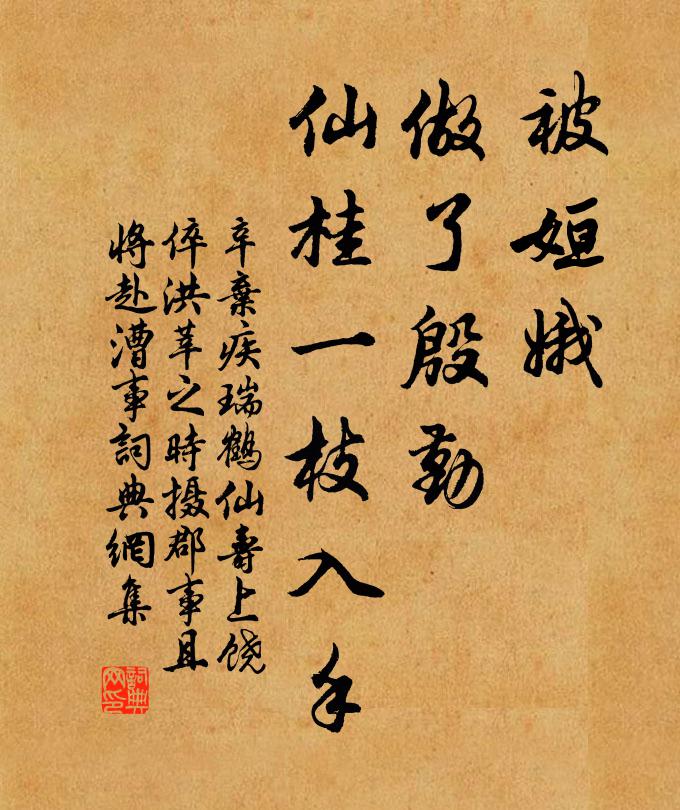 被姮娥
做了殷勤
仙桂一枝入手
辛棄疾瑞鶴仙壽上饶
倅洪莘之時摄郡事且
將赴漕事詞典網集
詞典
网印